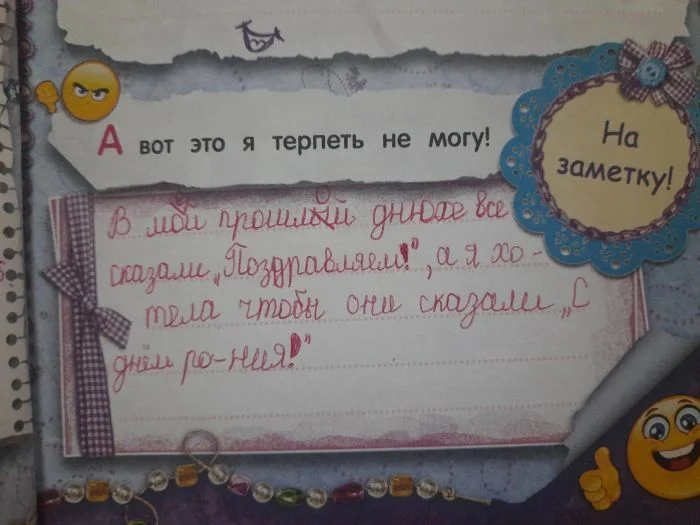 А вот это я терпеть не могу!
На
заметку!
В мой прошлой днюхе все
сказали „Поздравляем!", а я хо-
тела чтобы они сказали „С
днём ро-ния!"